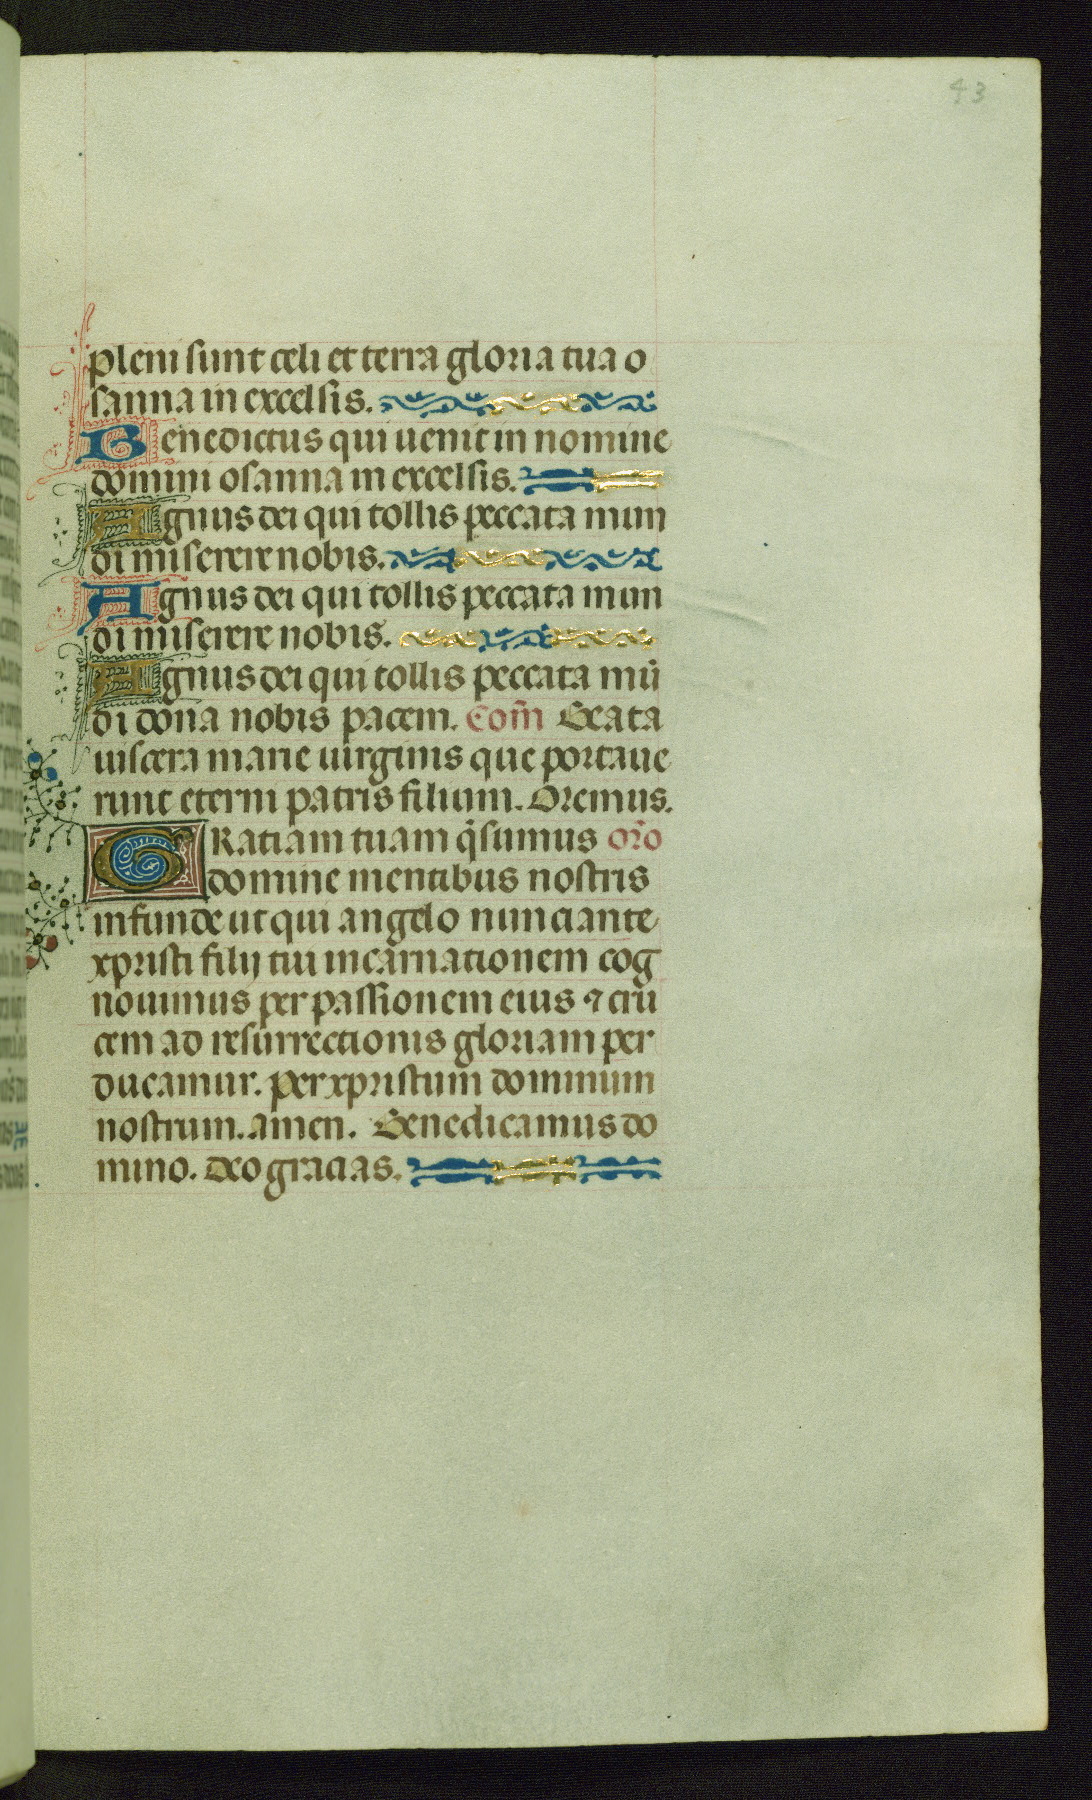 43
pleni sunt celi et terra gloria tua o
sanna in excelsis.
Benedictus qui uenit in nomine
domini osanna in excelsis.
Agnus dei qui tollis peccata mun
di miserere nobis.
Agnus dei qui tollis peccata mun
di miserere nobis.
Agnus dei qui tollis peccata mū
di dona nobis pacem. Com̄ Beata
uiscera marie uirginis que portaue
runt eterni patris filium. Oremus.
GRatiam tuam q̄sumus or̄o
domine mentibus nostris
infunde ut qui angelo nunciante
xpristi filij tui incarnationem cog
nouimus per passionem eius ⁊ cru
cem ad resurrectionis gloriam per
ducamur. per xpristum dominum
nostrum. amen. Benedicamus do
mino. Deo gracias.